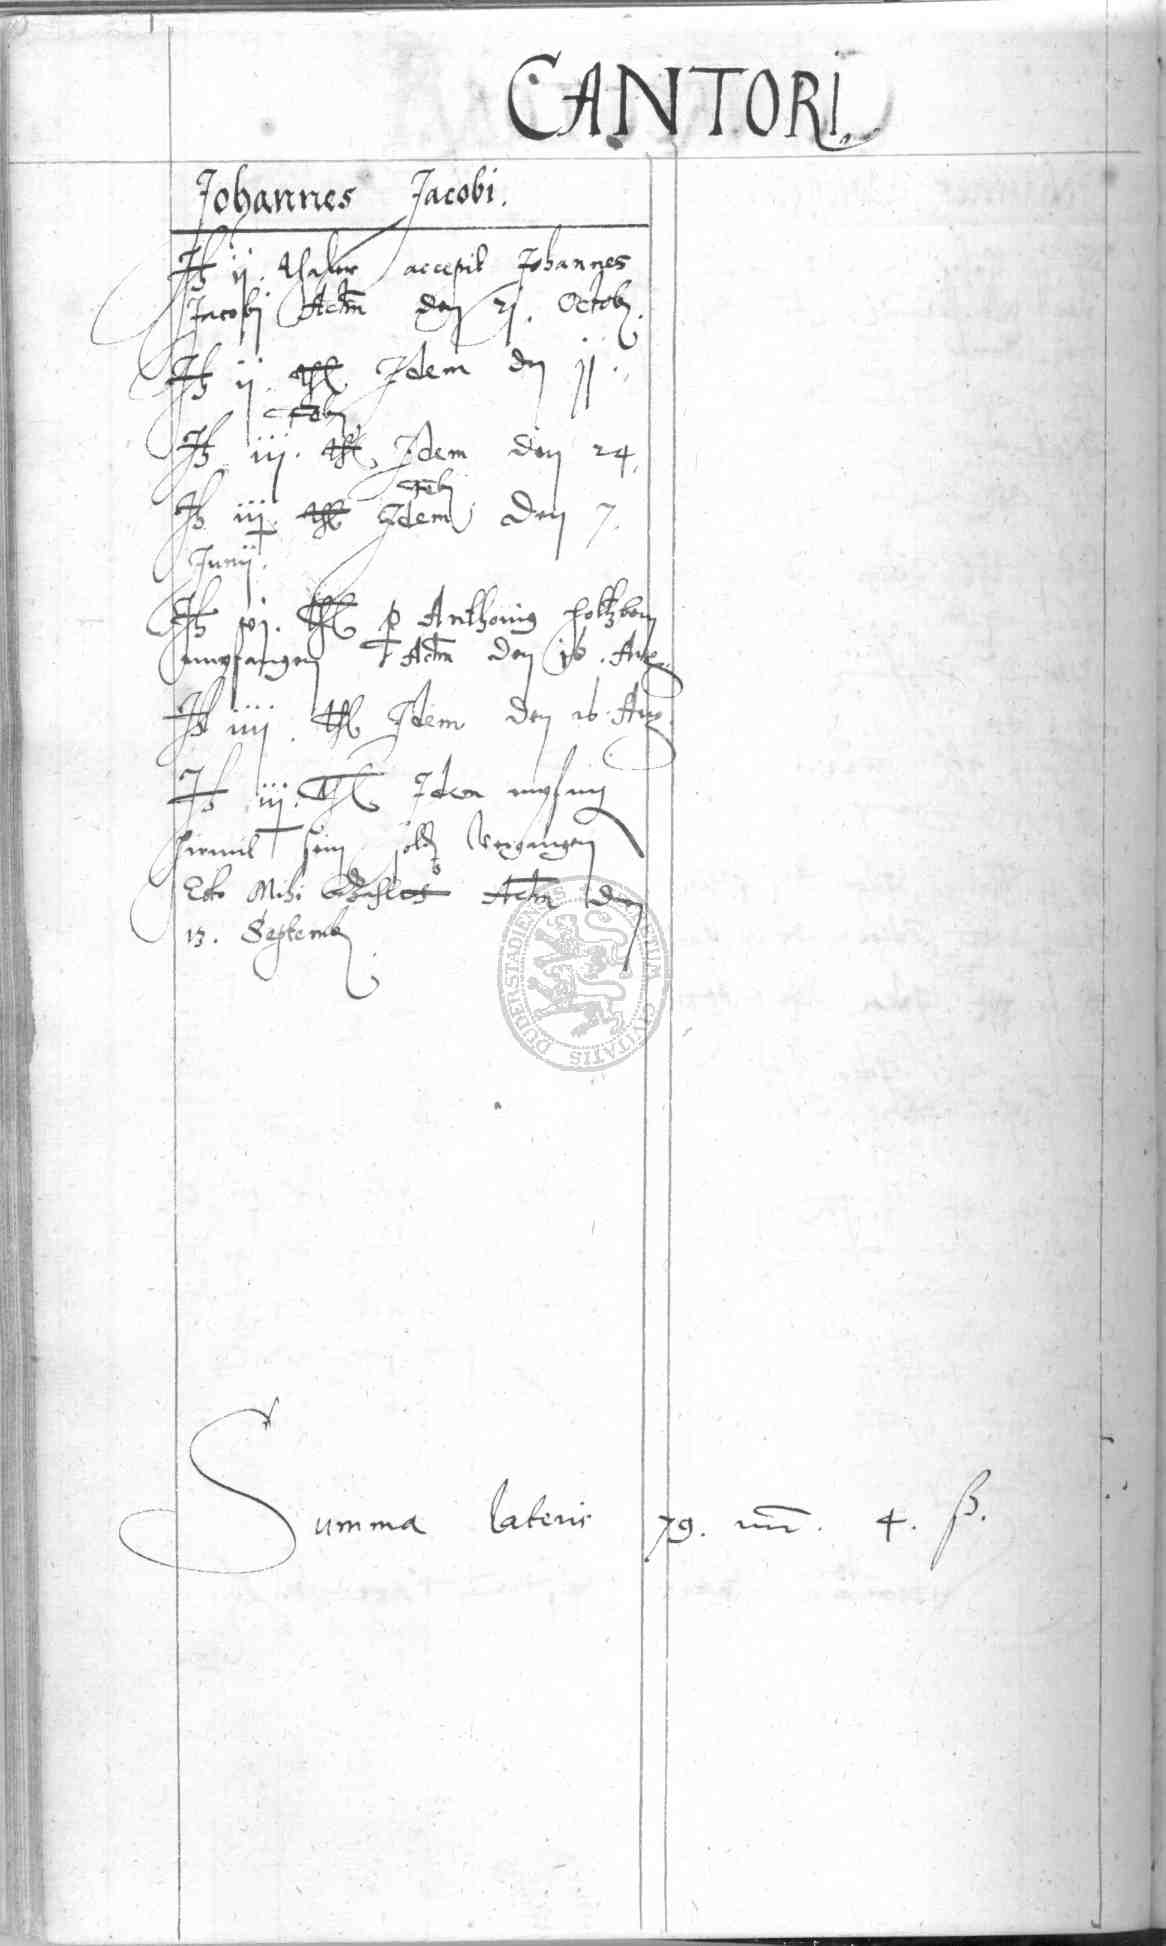 CANTORI.
Johannes Jacobi.
It ij. thaler accepit Johannes
Jacobj Actum den 21. Octob.
It ij. thl Idem den jj.
Feb.
It iij. thl Idem den 24.
Feb
It iij. thl Idem den 7.
Junij.
It vj. thl p Anthonig holtzborn
empfangen Actum den 16. Aug.
It iiij. thl Idem den 16. Aug.
It iij. thl Idem empfing
hirmit sein soldt vergangen
Esto Mihi Actum den
13. Septemb.
Summa lateris 79. mr. 4. ß.
DUDERSTADIENSIS CIVITATIS